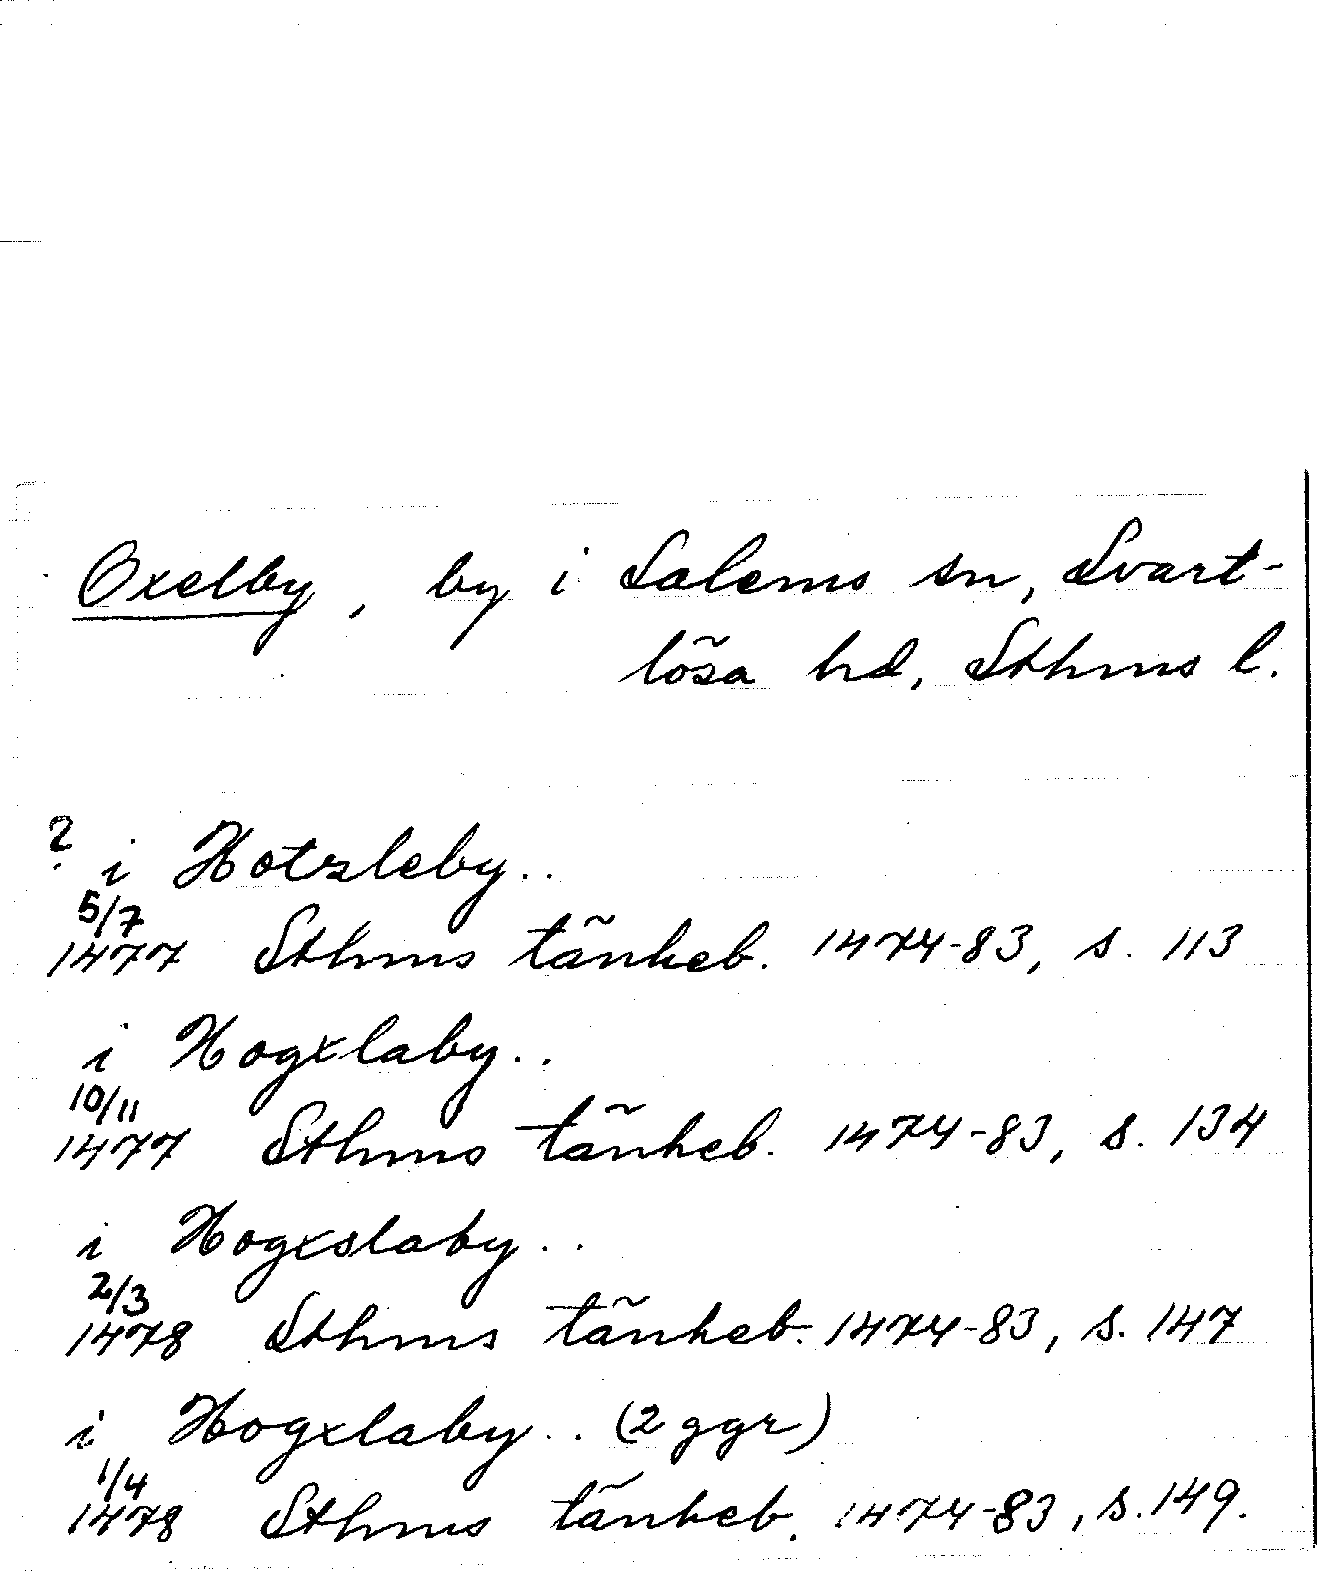 Oxelby, by i Salems sn, Svart-
lösa hd, Sthms l.
? i Hotzleby..
5/7
1477 Sthms tänkeb. 1474-83, s. 113
i Hogxlaby..
10/11
1477 Sthms tänkeb. 1474-83, s. 134
i Hogxslaby..
2/3
1478 Sthms tänkeb. 1474-83, s. 147
i Hogxlaby.. (2 ggr)
1/4
1478 Sthms tänkeb. 1474-83, s. 149.